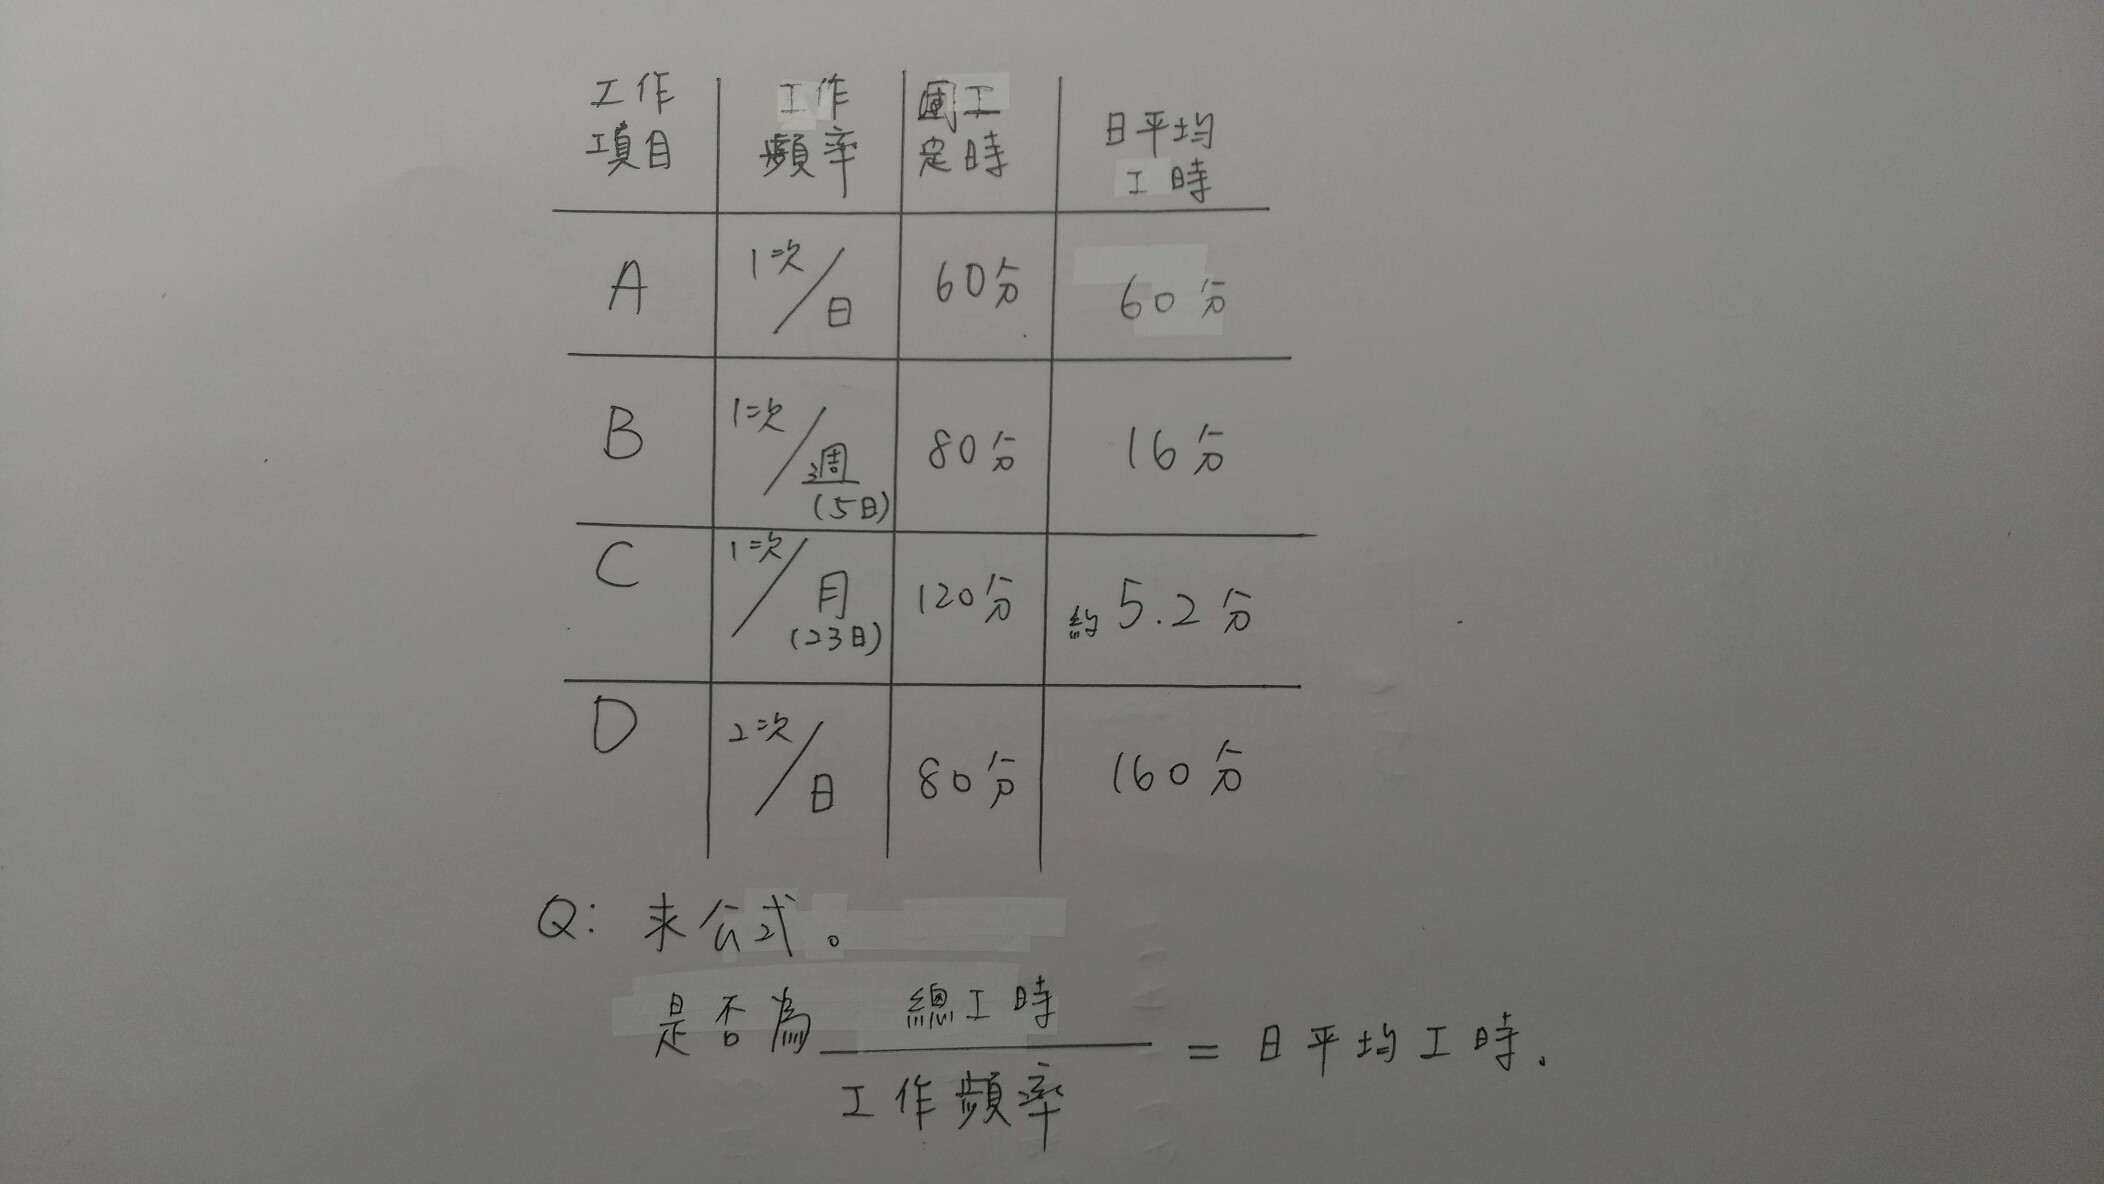 工作項目 工作頻率 固定工時 日平均工時
A 1次/日 60分 60分
B 1次/週(5日) 80分 16分
C 1次/月(23日) 120分 約5.2分
D 2次/日 80分 160分
Q: 求公式。
是否為 總工時/工作頻率 = 日平均工時.